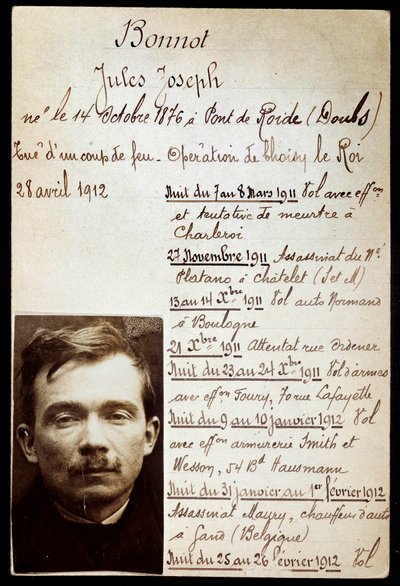 Bonnot
Jules Joseph
né le 14 Octobre 1876 à Pont de Roide (Doubs)
Tué d'un coup de feu - Opération de Choisy le Roi
28 avril 1912
Nuit du 7 au 8 Mars 1911 Vol avec effon
et tentative de meurtre à
Charleroi
27 Novembre 1911 Assassinat du Né
Platano à Châtelet (S et M)
13 au 14 Xbre 1911 Vol auto Normand
à Boulogne
21 Xbre 1911 Attentat rue Ordener
Nuit du 23 au 24 Xbre 1911 Vol d'armes
avec effon Foury, 70 rue Lafayette
Nuit du 9 au 10 janvier 1912 Vol
avec effon armurerie Smith et
Wesson, 54 Bd Hausmann
Nuit du 31 janvier au 1er février 1912
Assassinat Maury, chauffeur d'auto
à Gand (Belgique)
Nuit du 25 au 26 février 1912 Vol